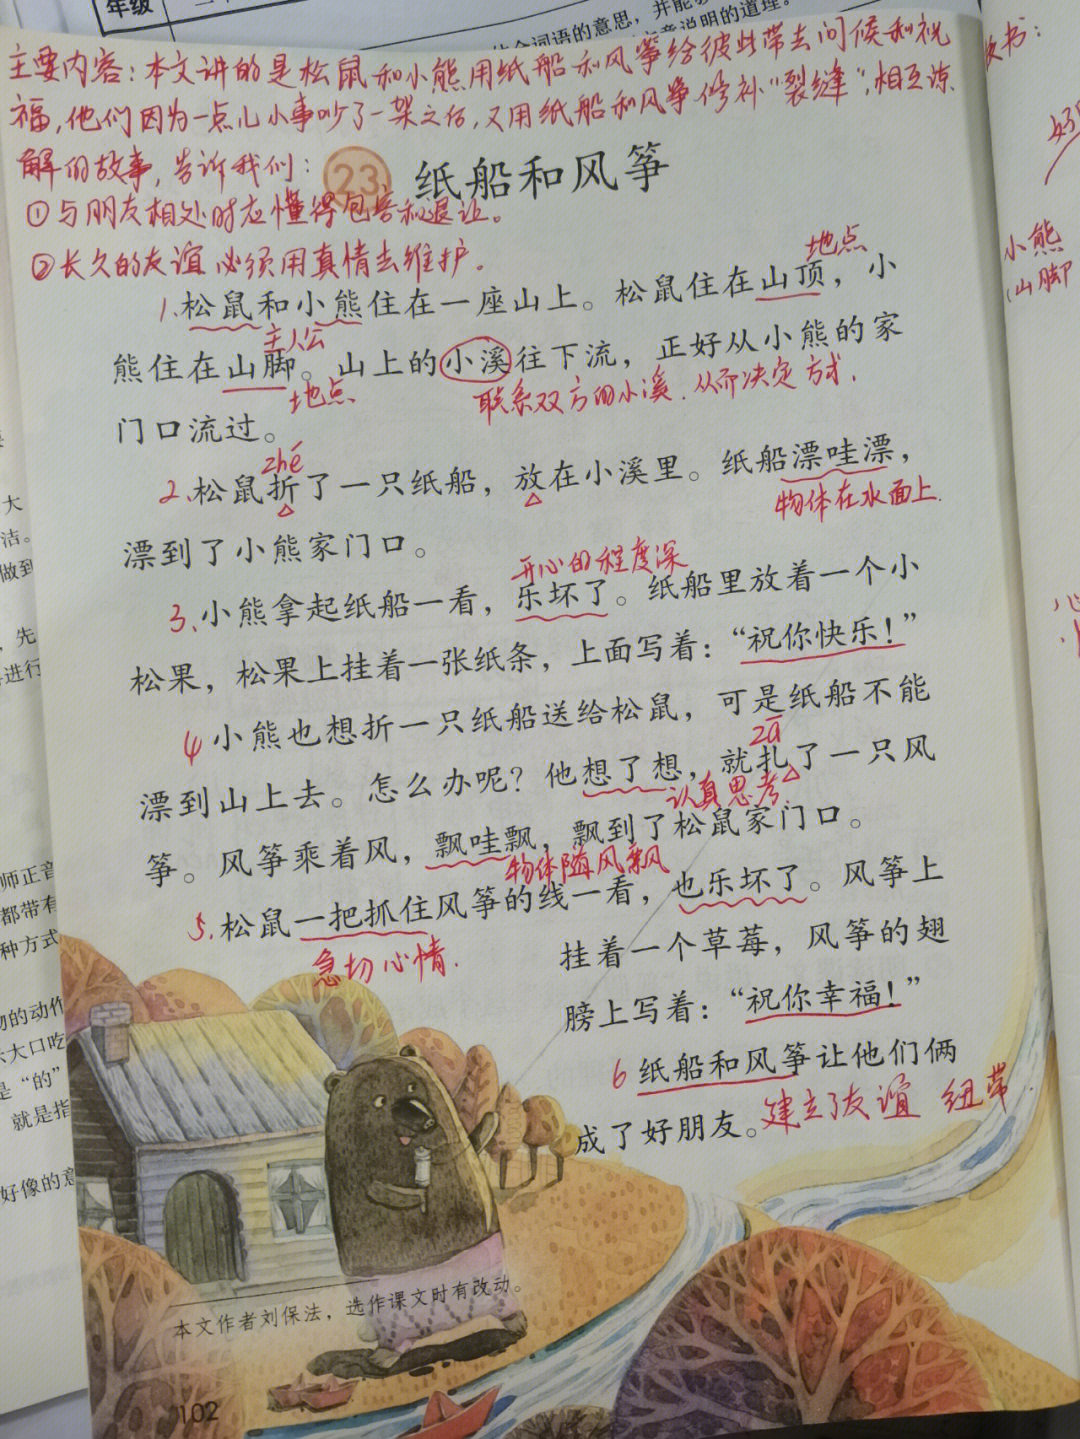 年级
体会词语的意思，并能
说明的道理。
主要内容：本文讲的是松鼠和小熊用纸船和风筝给彼此带去问候和祝
福，他们因为一点儿小事吵了一架之后，又用纸船和风筝修补“裂缝”，相互谅
解的故事，告诉我们：
23 纸船和风筝
①与朋友相处时应懂得包容和退让。
②长久的友谊必须用真情去维护。
地点
1.松鼠和小熊住在一座山上。松鼠住在山顶，小
主人公
熊住在山脚。山上的小溪往下流，正好从小熊的家
地点
联系双方的小溪．从而决定方式．
门口流过。
zhé
2、松鼠折了一只纸船，放在小溪里。纸船漂哇漂，
物体在水面上．
漂到了小熊家门口。
开心的程度深
3、小熊拿起纸船一看，乐坏了。纸船里放着一个小
松果，松果上挂着一张纸条，上面写着：“祝你快乐！”
4 小熊也想折一只纸船送给松鼠，可是纸船不能
zā
漂到山上去。怎么办呢？他想了想，就扎了一只风
认真思考
筝。风筝乘着风，飘哇飘，飘到了松鼠家门口。
物体随风飘
5、松鼠一把抓住风筝的线一看，也乐坏了。风筝上
急切心情．
挂着一个草莓，风筝的翅
膀上写着：“祝你幸福！”
6 纸船和风筝让他们俩
成了好朋友。
建立了友谊 纽带
本文作者刘保法，选作课文时有改动。
102
大
洁。
做到
，先
进行
师正音
都带有
种方式
物的动作
大口吃
是“的”
就是指
好像的意
书：
小熊
山脚